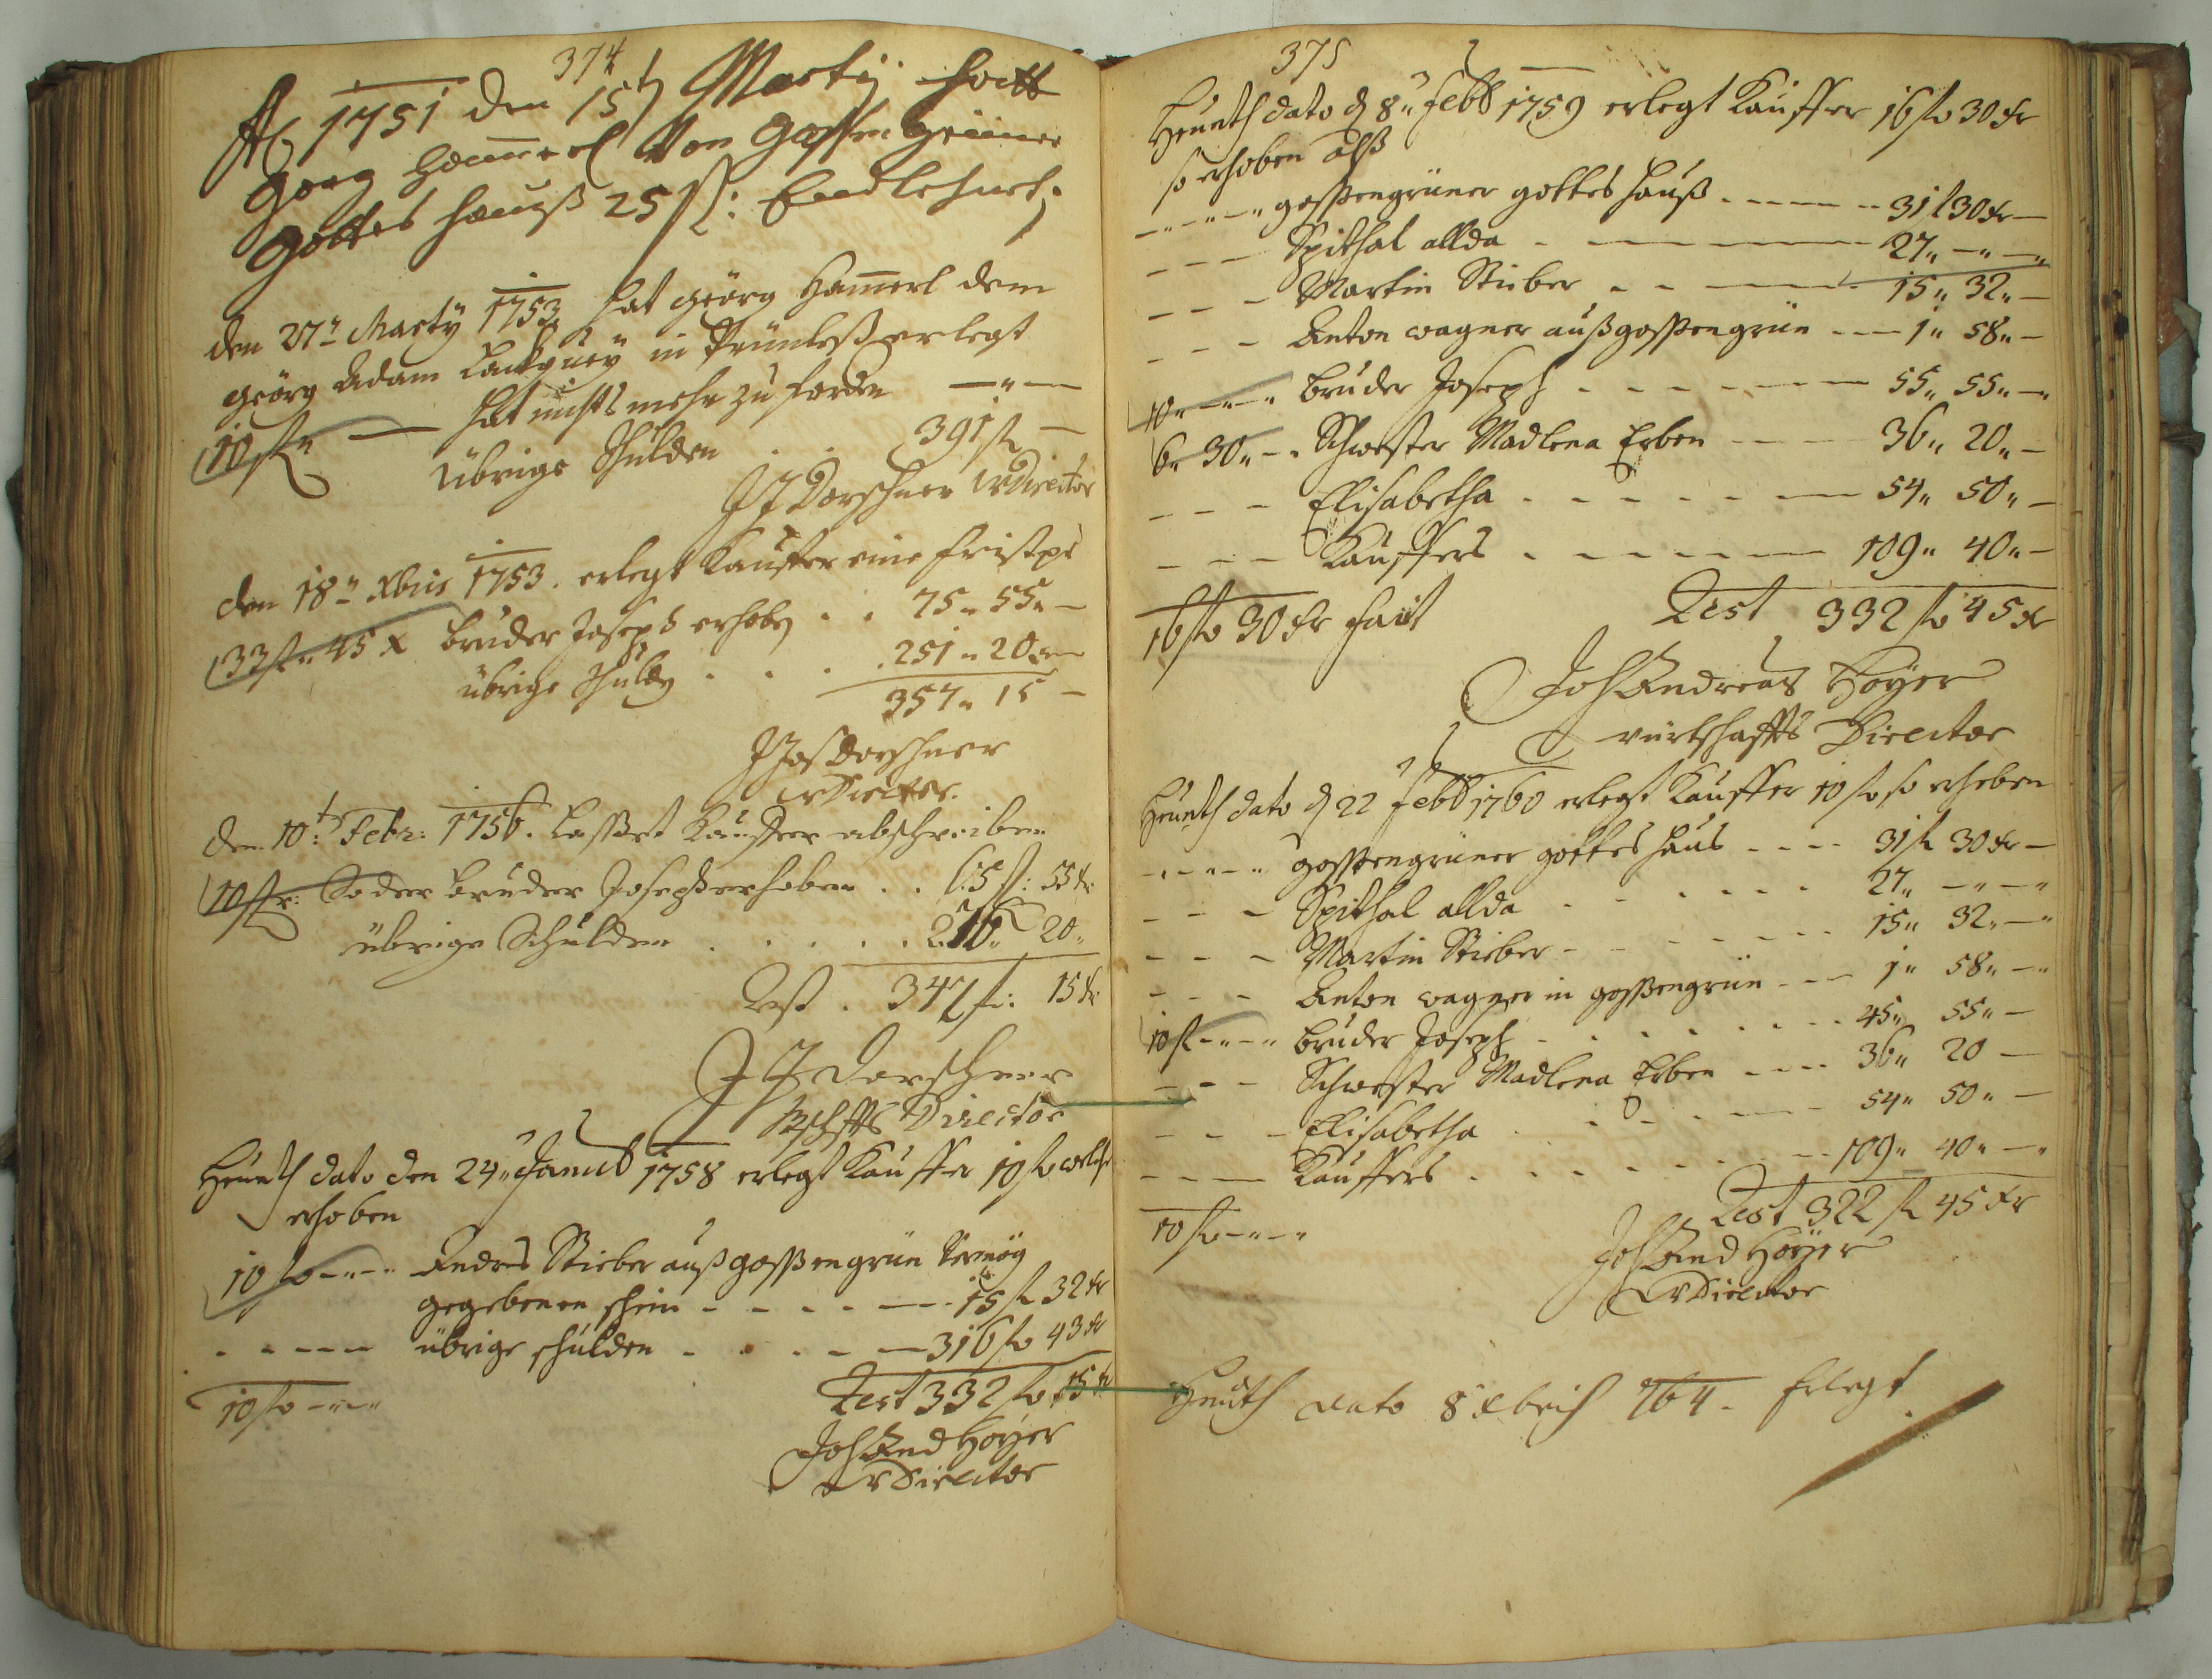 374
Ao 1751 den 15t Martij hatt
Georg Hammerl von Gossengrüner
Gottes Hauß 25 fl: Endlehnet,
den 27" Marty 1753 hat Geörg Hamerl dem
Geörg Adam in erlegt
10 fl" — hat nichts mehr zu fordern —"—
übrige Schulden . . 391 fl —
JJ Dorschner WDirector
den 18" Xbris 1753. erlegt Kauffer eine fristpr
33 fl" 45 x Bruder Joseph erhobn . . 75" 55"—
übrige Schuldn . . . . 251" 20"—
357" 15 —
J Jos Dorschner
WDirector.
den 10t: Febr: 1756. Lasset Kauffer abschreiben
10 fl: So der Bruder Joseph erhoben . . 65 fl: 55 xr:
übrige Schulden . . . . . 20"
Rest . 347 fl: 15 xr:
J J Dorschner
Director
Heunth dato den 24" Januar 1758 erlegt Kauffer 10 fl welche
erhoben
10 fl —"—" Andres Stieber auß Gossengrün Vermög
gegebenen schein - - - - — 15 fl 32 xr
- - — — übrige schulden - - - - — 316 fl 43 xr
10 fl —"—" Rest 332 fl 15 xr
Joh And Hoyer
WDirector
375
Heunth dato d 8" Febr 1759 erlegt Kauffer 16 fl 30 xr
so erhoben alß
—"—"—" gossengrüner gottes Hauß - - - — — 31 f 30 xr —
— — — Spithal allda - — — — — 27" —"—"
— — — Martin Stieber - - — — — 15" 32"—
— — — Anton Wagner auß gossengrün - - — 1" 58"—
10"—"—" Bruder Joseph - - - - - — — 55" 55"—"
6" 30"—" Schwester Madlena Erben — — — 36" 20"—
— — — Elisabetha - - - - - — — 54" 50"—
— — — Kauffers - - - - — — 109" 40"—
16 fl 30 xr hait Rest 332 fl 45 xr
Joh Andreas Hoyer
würtschaffts Director
Heunth dato d 22 Febr 1760 erlegt Kauffer 10 fl so erheben
—"—"—" gossengrüner gottes Haus - - - - 31 fl 30 xr —
— — — Spithal allda - - - - - - - 27" —"—"
— — — Martin Stieber - - - - - - - 15" 32"—"
— — — Anton wagner in gossengrün - - — 1" 58"—"
10 fl —"—" Bruder Joseph - - - - - - - 45" 55"—
— — — Schwester Madlena Erben - - - - 36" 20 —
— — — Elisabetha - - - - — — 54" 50"—
— — — Kauffers - - - - - - - 109" 40"—"
10 fl —"—" Rest 322 fl 45 xr
Joh And Hoyer
WDirector
Heuth dato 8 Xbris 764. Erlegt